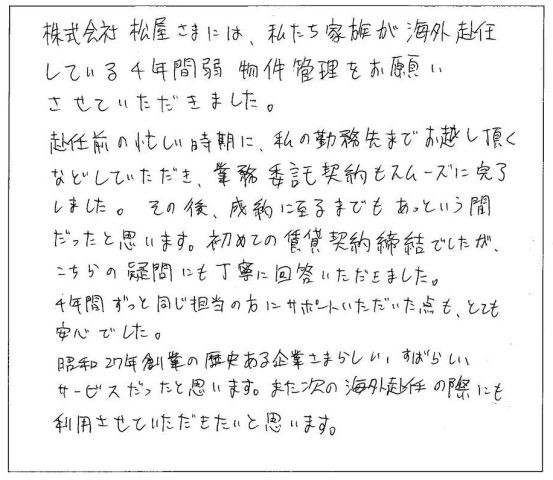 株式会社 松屋さまには、私たち家族が海外赴任
している4年間弱 物件管理をお願い
させていただきました。
赴任前の忙しい時期に、私の勤務先までお越し頂く
などしていただき、業務委託契約もスムーズに完了
しました。その後、成約に至るまでもあっという間
だったと思います。初めての賃貸契約締結でしたが、
こちらの疑問にも丁寧に回答いただきました。
4年間ずっと同じ担当の方にサポートいただいた点も、とても
安心でした。
昭和27年創業の歴史ある企業さまらしい、すばらしい
サービスだったと思います。また次の海外赴任の際にも
利用させていただきたいと思います。